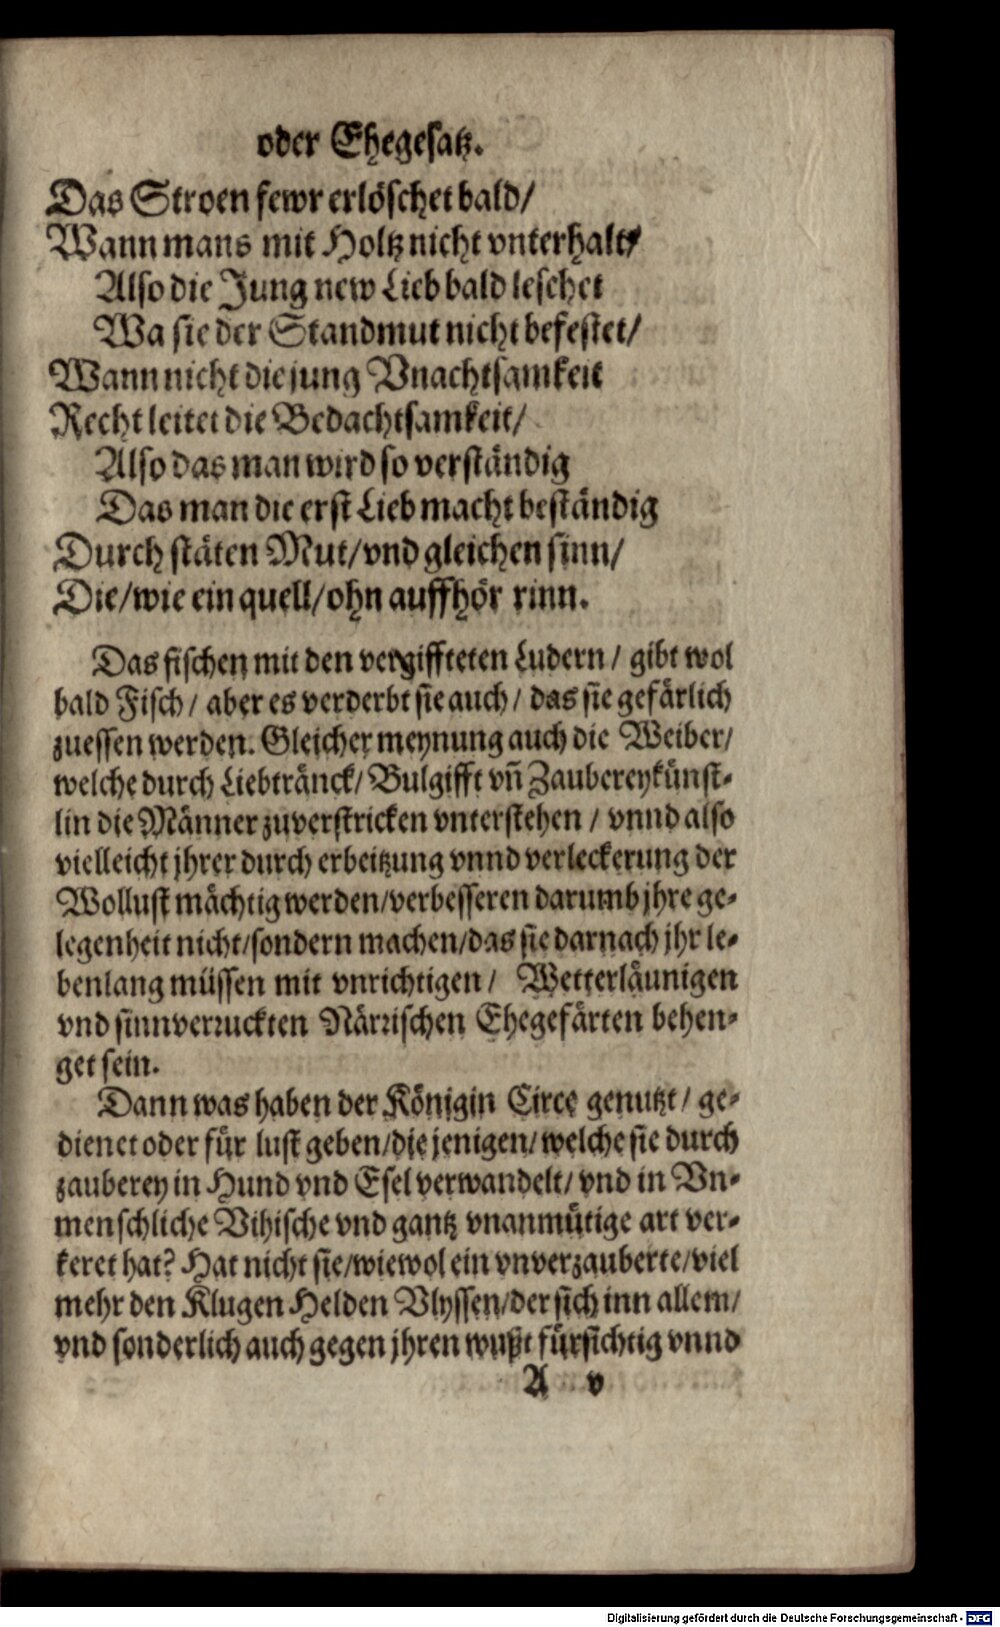 oder Ehegesatz.
Das Stroen fewr erlöschet bald/
Wann mans mit Holtz nicht vnterhalt/
Also die Jung new Lieb bald leschet
Wa sie der Standmut nicht befestet/
Wann nicht die jung Vnachtsamkeit
Recht leitet die Bedachtsamkeit/
Also das man wird so verständig
Das man die erst Lieb macht beständig
Durch stäten Mut/vnd gleichen sinn/
Die/wie ein quell/ohn auffhör rinn.
Das fischen mit den vergiffteten Ludern/ gibt wol
bald Fisch/ aber es verderbt sie auch/ das sie gefärlich
zuessen werden. Gleicher meynung auch die Weiber/
welche durch Liebtränck/ Bulgifft vñ Zaubereykünst-
lin die Männer zuverstricken vnterstehen / vnnd also
vielleicht jhrer durch erbeitzung vnnd verleckerung der
Wollust mächtig werden/verbesseren darumb jhre ge-
legenheit nicht/sondern machen/das sie darnach jhr le-
benlang müssen mit vnrichtigen/ Wetterläunigen
vnd sinnverruckten Närrischen Ehegefärten behen-
get sein.
Dann was haben der Königin Circe genutzt/ ge-
dienet oder für lust geben/die jenigen/welche sie durch
zauberey in Hund vnd Esel verwandelt/ vnd in Vn-
menschliche Vihische vnd gantz vnanmütige art ver-
keret hat? Hat nicht sie/wiewol ein vnverzauberte/viel
mehr den Klugen Helden Vlyssen/der sich inn allem/
vnd sonderlich auch gegen jhren wußt fürsichtig vnnd
A v
Digitalisierung gefördert durch die Deutsche Forschungsgemeinschaft - DFG